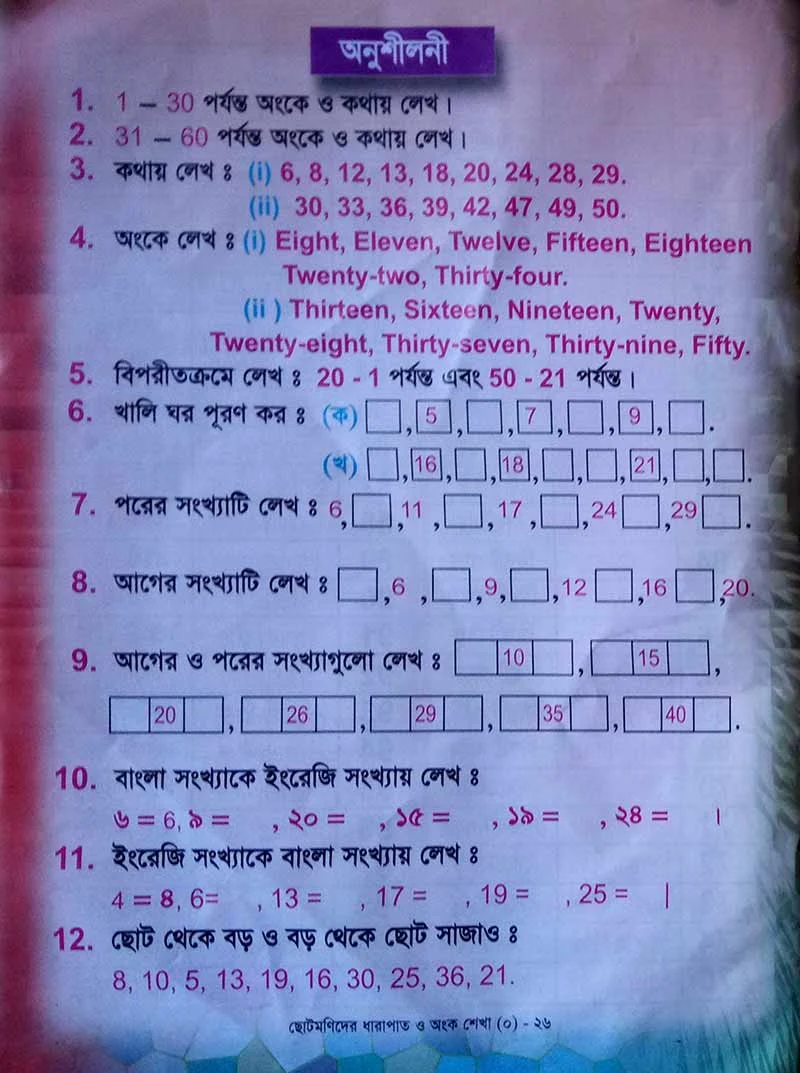 অনুশীলনী
1. 1 – 30 পর্যন্ত অংকে ও কথায় লেখ।
2. 31 – 60 পর্যন্ত অংকে ও কথায় লেখ।
3. কথায় লেখ ঃ (i) 6, 8, 12, 13, 18, 20, 24, 28, 29.
(ii) 30, 33, 36, 39, 42, 47, 49, 50.
4. অংকে লেখ ঃ (i) Eight, Eleven, Twelve, Fifteen, Eighteen
Twenty-two, Thirty-four.
(ii ) Thirteen, Sixteen, Nineteen, Twenty,
Twenty-eight, Thirty-seven, Thirty-nine, Fifty.
5. বিপরীতক্রমে লেখ ঃ 20 - 1 পর্যন্ত এবং 50 - 21 পর্যন্ত।
6. খালি ঘর পূরণ কর ঃ (ক) , 5 , , 7 , , 9 , .
(খ) , 16 , , 18 , , , 21 , , .
7. পরের সংখ্যাটি লেখ ঃ 6, ,11 , ,17 , ,24 ,29 .
8. আগের সংখ্যাটি লেখ ঃ ,6 , ,9, ,12 ,16 ,20.
9. আগের ও পরের সংখ্যাগুলো লেখ ঃ 10 , 15 ,
20 , 26 , 29 , 35 , 40 .
10. বাংলা সংখ্যাকে ইংরেজি সংখ্যায় লেখ ঃ
৬ = 6, ৯ = , ২০ = , ১৫ = , ১৯ = , ২৪ = ।
11. ইংরেজি সংখ্যাকে বাংলা সংখ্যায় লেখ ঃ
4 = ৪, 6= , 13 = , 17 = , 19 = , 25 = |
12. ছোট থেকে বড় ও বড় থেকে ছোট সাজাও ঃ
8, 10, 5, 13, 19, 16, 30, 25, 36, 21.
ছোটমণিদের ধারাপাত ও অংক শেখা (০) - ২৬